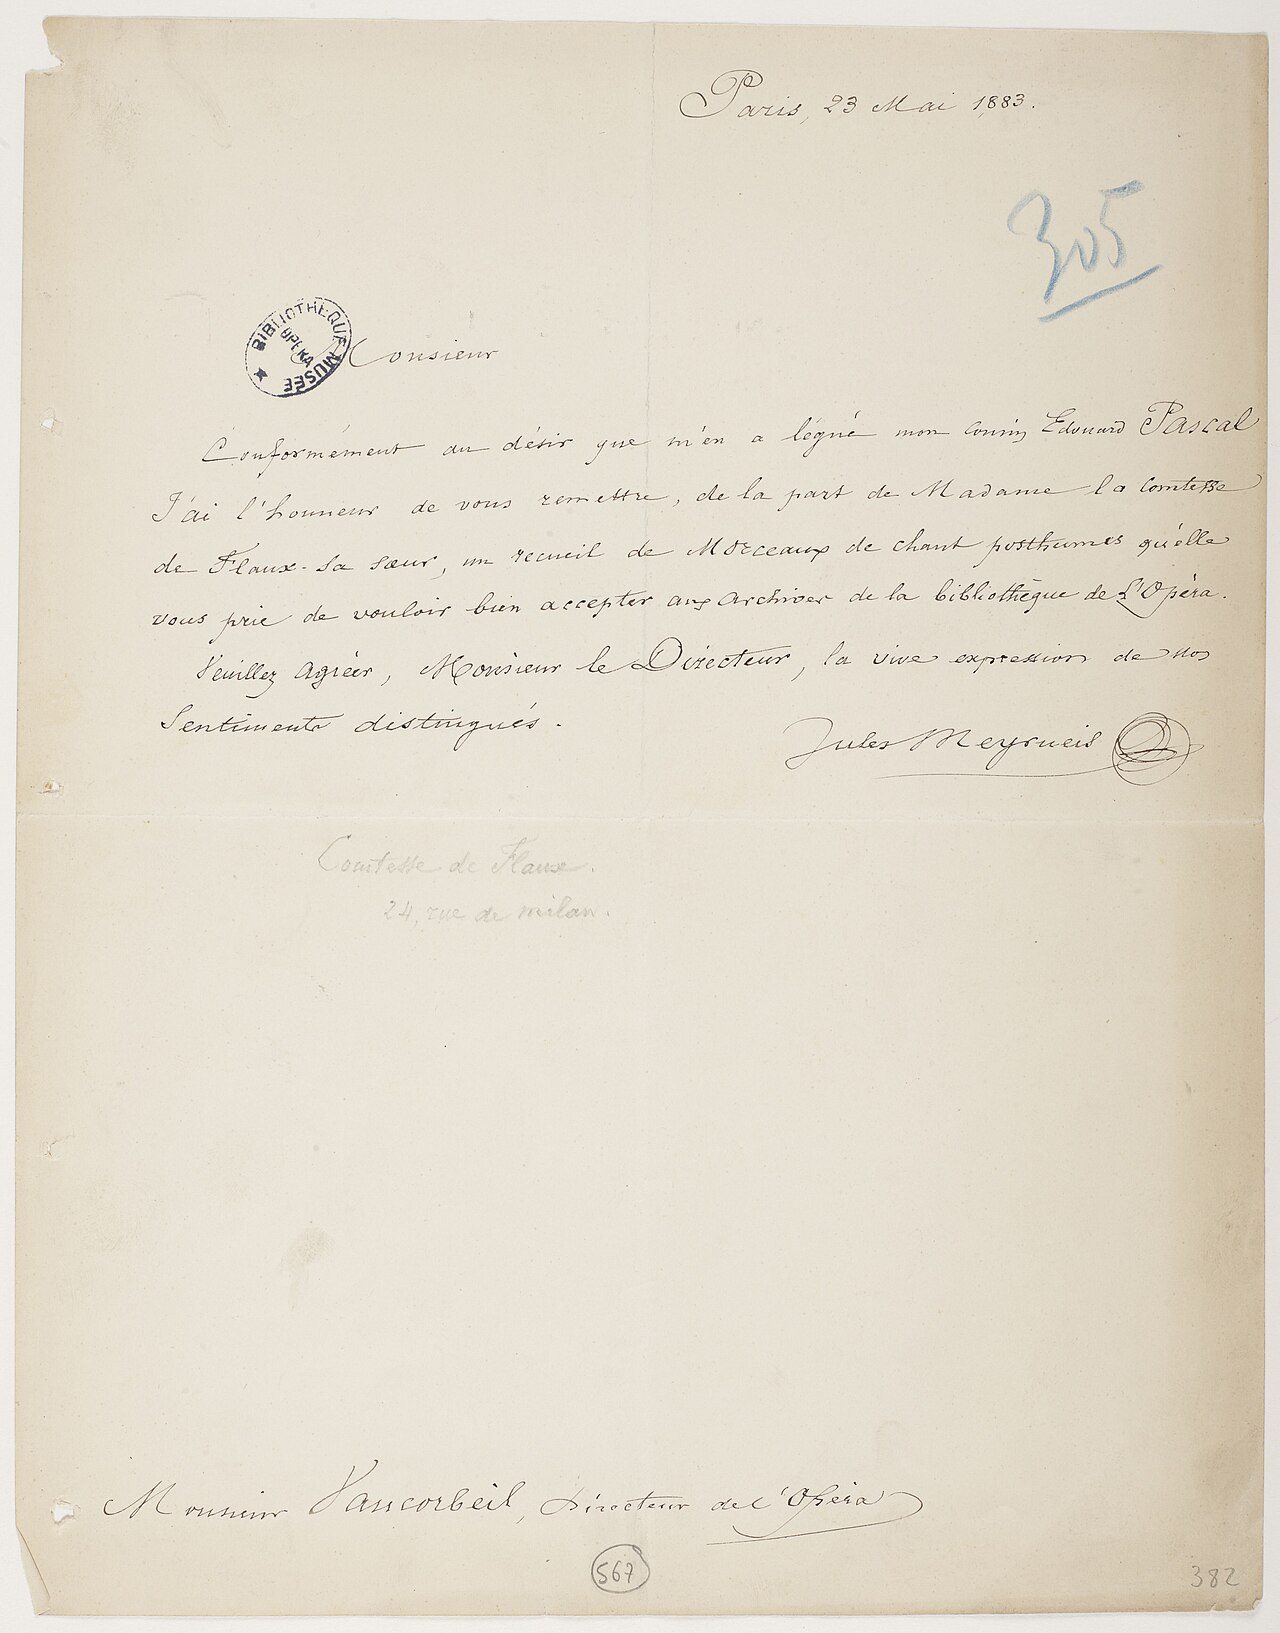 Paris, 23 Mai 1883.
305
BIBLIOTHÈQUE MUSÉE
OPERA
Monsieur
Conformément au désir que m'en a légué mon cousin Edouard Pascal
J'ai l'honneur de vous remettre, de la part de Madame la Comtesse
de Flaux sa sœur, un recueil de Morceaux de chant posthumes qu'elle
vous prie de vouloir bien accepter aux Archives de la bibliothèque de L'Opéra.
Veuillez Agréer, Monsieur le Directeur, la vive expression de nos
Sentiments distingués.
Jules Meyrueis
Comtesse de Flaux.
24, rue de milan.
Monsieur Vaucorbeil, Directeur de l'Opéra
567
382